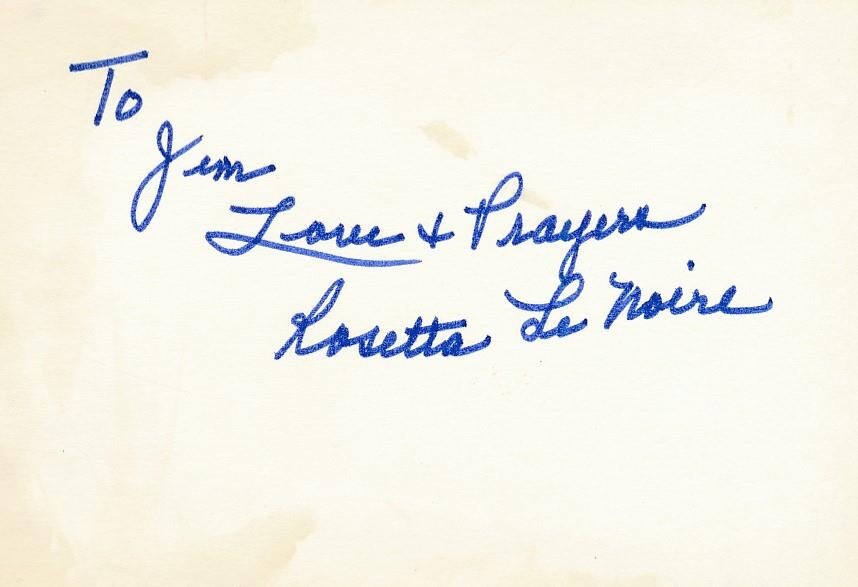 To
Jim
Love + Prayers
Rosetta Le Noire